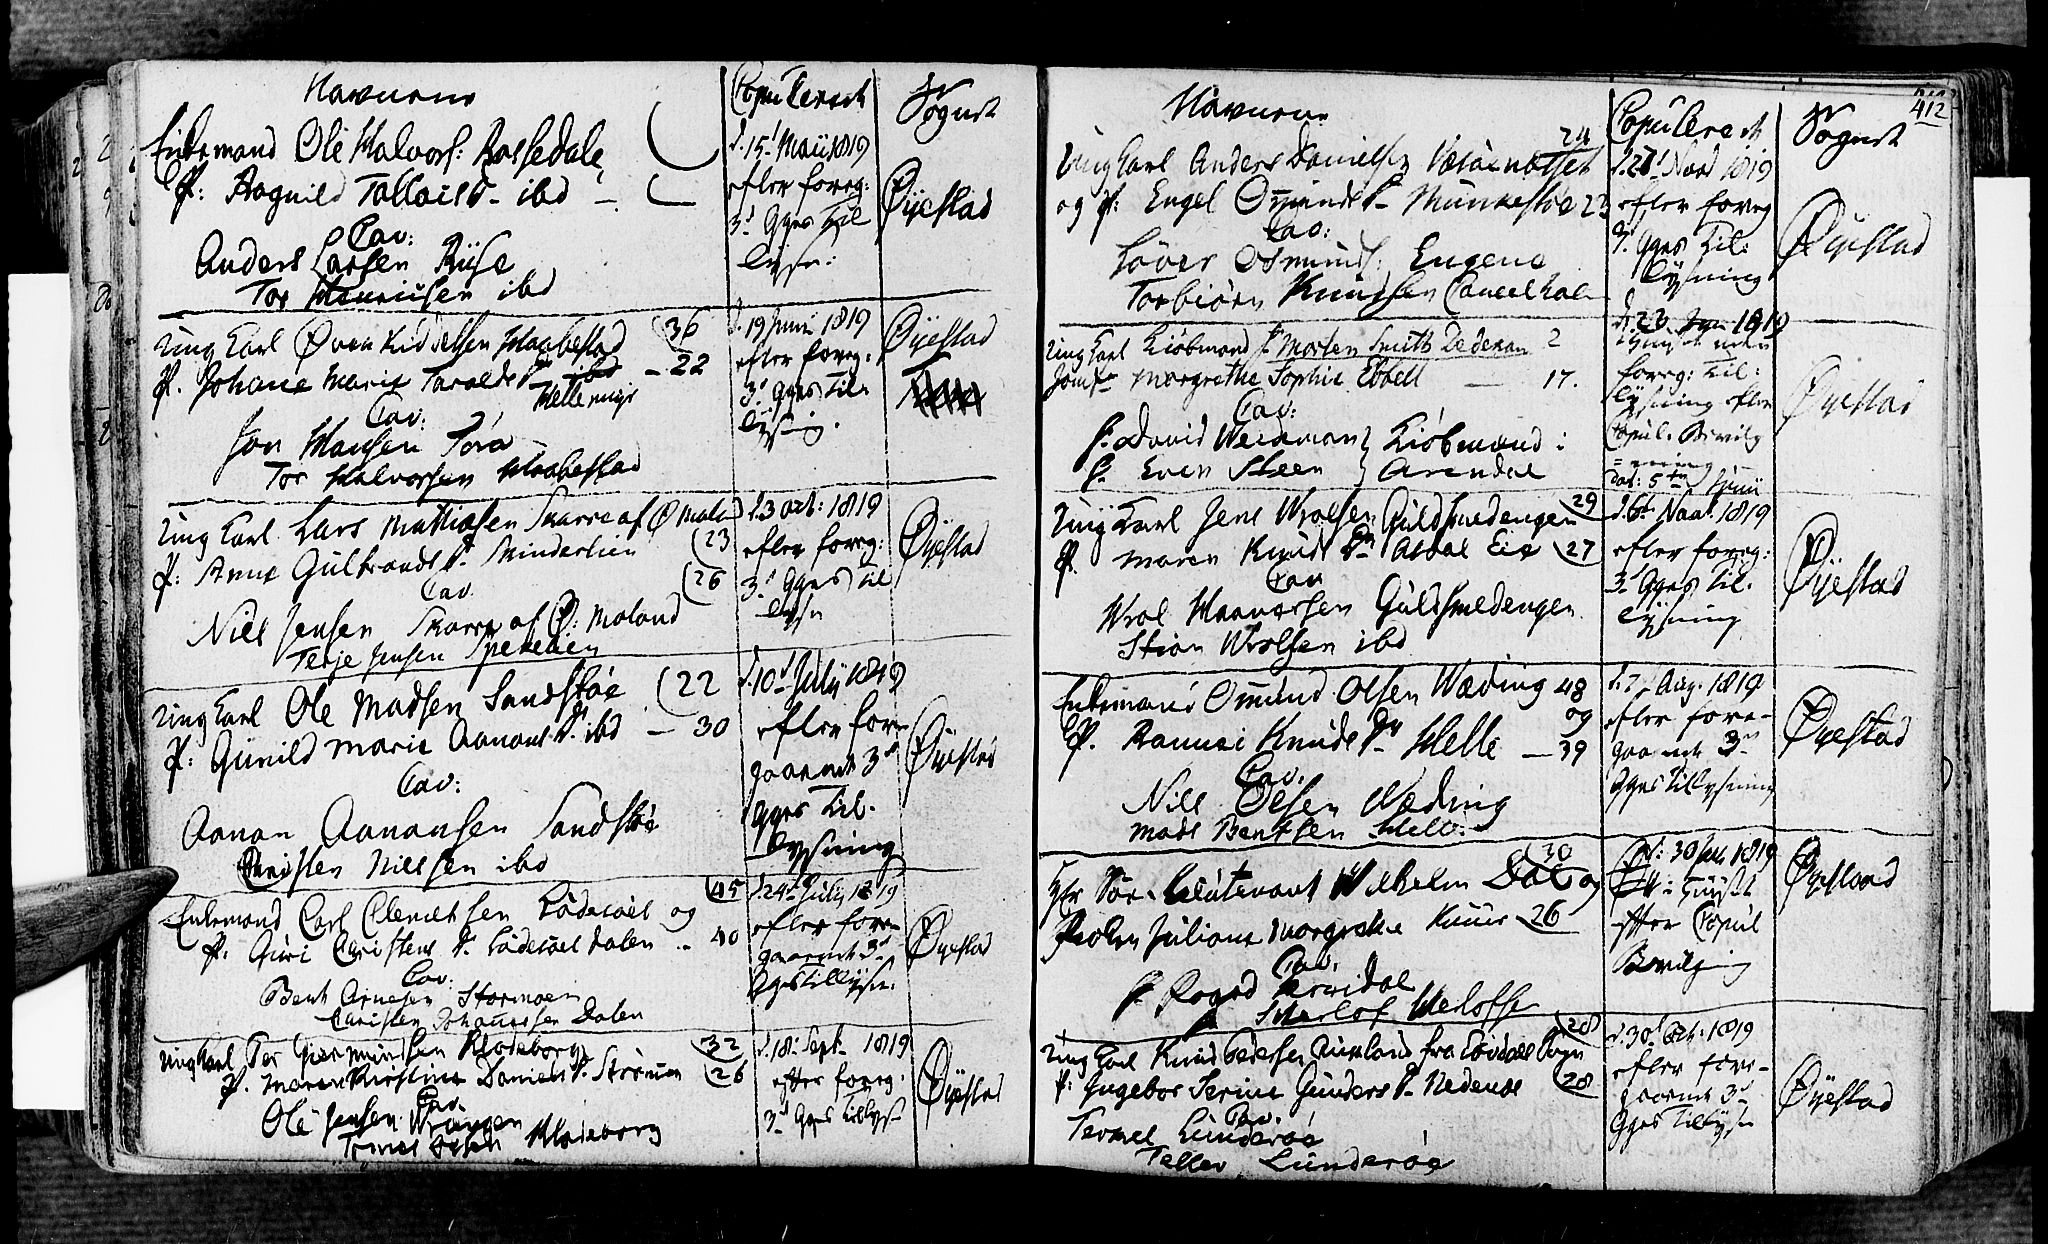 Navnene
Copulerede
Sognet
Enkemand Ole Halvors: Rossedale
P: Aagnild Tallois D. ibd
Cav:
Anders Larsen Riise
Tor Henriksen ibd
d. 15 Maii 1819
efter foreg:
3d Gges Til
lysn:
Øyestad
Ung Karl Øven Kittelsen Haabestad 36
P. Johane Marie Taralds D. ibd 22
Helle
Cav:
Jon Hansen Torø
Tor Halvorsen Haabestad
d. 19 Junii 1819
efter foreg.
3d Gges Til
lysng.
Øyestad
Ung Karl Lars Mathiasen Skarre af Ø Moland
23
P: Anne Gulbrands D. Minderlien
26
Cav.
Niels Jensen Skarre af Ø: Moland
Terje Jensen
d. 3 Oct: 1819
efter foreg:
3d Gges Til
lysn
Øyestad
Ung Karl Ole Madsen Sandstøe 22
P: Gunild Marie Aanons D. ibd 30
Cav:
Aanon Aanonsen Sandstøe
Christen Nielsen ibd
d. 10d July 1819
efter for-
gaaende 3d
Gges Til-
lysning
Øyestad
45
Enkemand Carl Clemetsen Lödesöel og
P: Guri Christens D. Lödesöel Dalen 40
Cav:
Bent Arnesen Stormoen
Christen Johannesen Dalen
d. 24d July 1819
efter fore-
gaaende 3d
Gges Tillysn.
Øyestad
Ung Karl Ter Giermundsen Klodeborg 32
P. Maren Kirstine Daniels D. Strömm 26
Cav.
Ole Jensen Vrangen
Olsen Klodeborg
d. 18 Sept. 1819
efter foreg.
3d Gges Tillys
Øyestad
412
Navnene
Copulerede
Sognet
24
Ung Karl Anders Danielsen
og P: Engel Osmunds D. Munkestøe 23
Cav:
Löver Osmunds: Engene
Torbiörn Knudsen
Novb 1819
efter foreg
3. Gges Til-
lysning
Øyestad
Ung Karl Kiöbmand Hr Morten Smith Dedekam
Jomfr Margrethe Sophie Ebbell 17.
Cav:
Hr. David Weidemann } Kiöbmænd i
Hr. Even Steen } Arendal
d. 23 Jun 1819
uden
foreg: Til:
lysning efter
Copul: Bevilg
=ning
dat: 5te Junii
Øyestad
Ung Karl Jens Wrolsen Guldsmedengen 29
P. Maren Knuds D. Asdal Eie 27
Cav
Wrol Haaversen Guldsmedengen
Stian Wrolsen ibd
d. 6te Novb. 1819
efter foreg:
3d Gges Til-
lysning
Øyestad
Enkemand Omund Olsen Wæding 48
og
P. Rannei Knuds D. Helle 39
Cav.
Niels Olsen Wæding
Mads Bentsen Helle
Aug. 1819
efter fore-
gaaende 3de
Gges Tillysning
Øyestad
30
Hr Sec. Lieutenant Wilhelm Dal og
Juliane Margrethe Kuur 26
Cav.
Herlof Herlofsn
d: 30 1819
efter Copul
Bevilgning
Øyestad
28
Ung Karl Knud Pedersen fra Sogn
P: Ingebor Serine Gunders D. Nedenæs 28
Cav.
Termel Lunderöe
Tellev Lunderöe
d. 30d Oct. 1819
efter fore-
gaaende 3d
Gges Tillysn
Øyestad